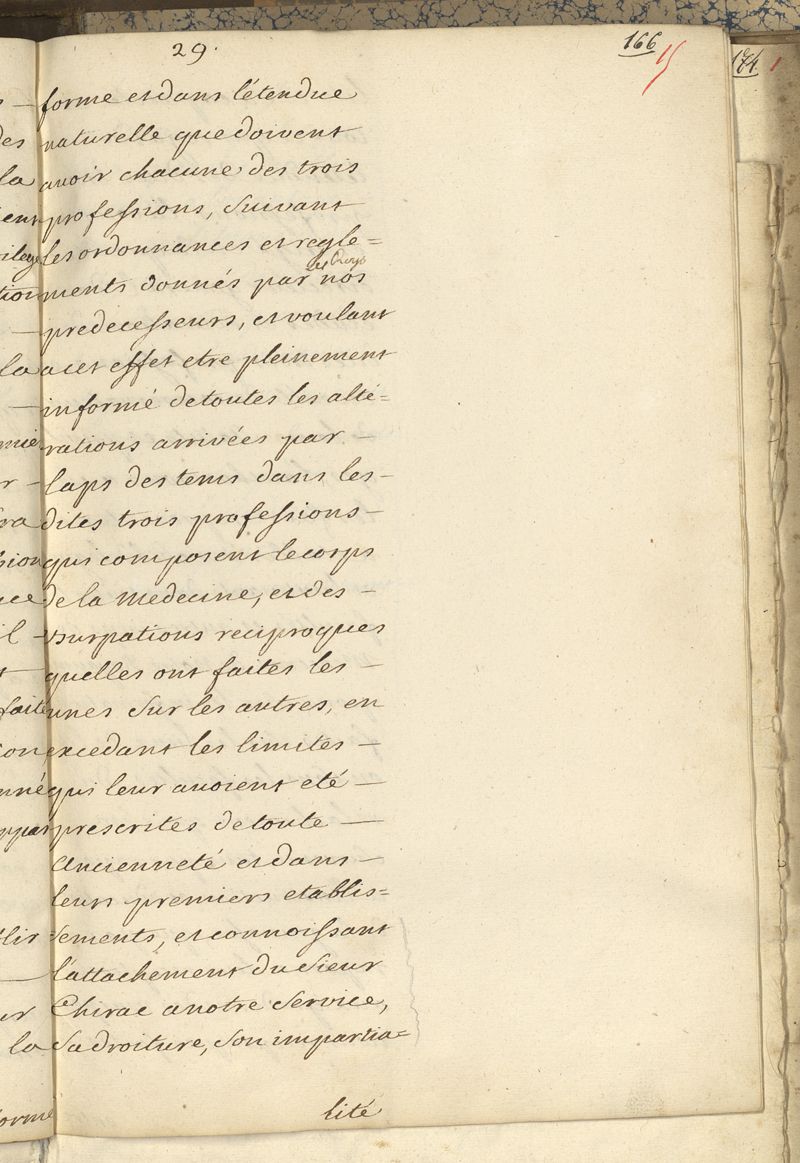 29.
166
174
forme et dans l'étendue
naturelle que doivent
avoir chacune des trois
professions, suivant
les ordonnances et regle=
les Roys
ments donnés par nos
predecesseurs, et voulant
a cet effet etre pleinement
informé de toutes les alté=
rations arrivées par —
laps des tems dans les —
dites trois professions —
qui composent le corps
de la medecine, et des —
usurpations reciproques
quelles ont faites les —
unes sur les autres, en
excedant les limites —
qui leur avoient eté —
prescrites de toute —
Ancienneté et dans —
leurs premiers etablis=
sements, et connoissant
l'attachement du sieur
Chirac a notre service,
sa droiture, son impartia=
lité